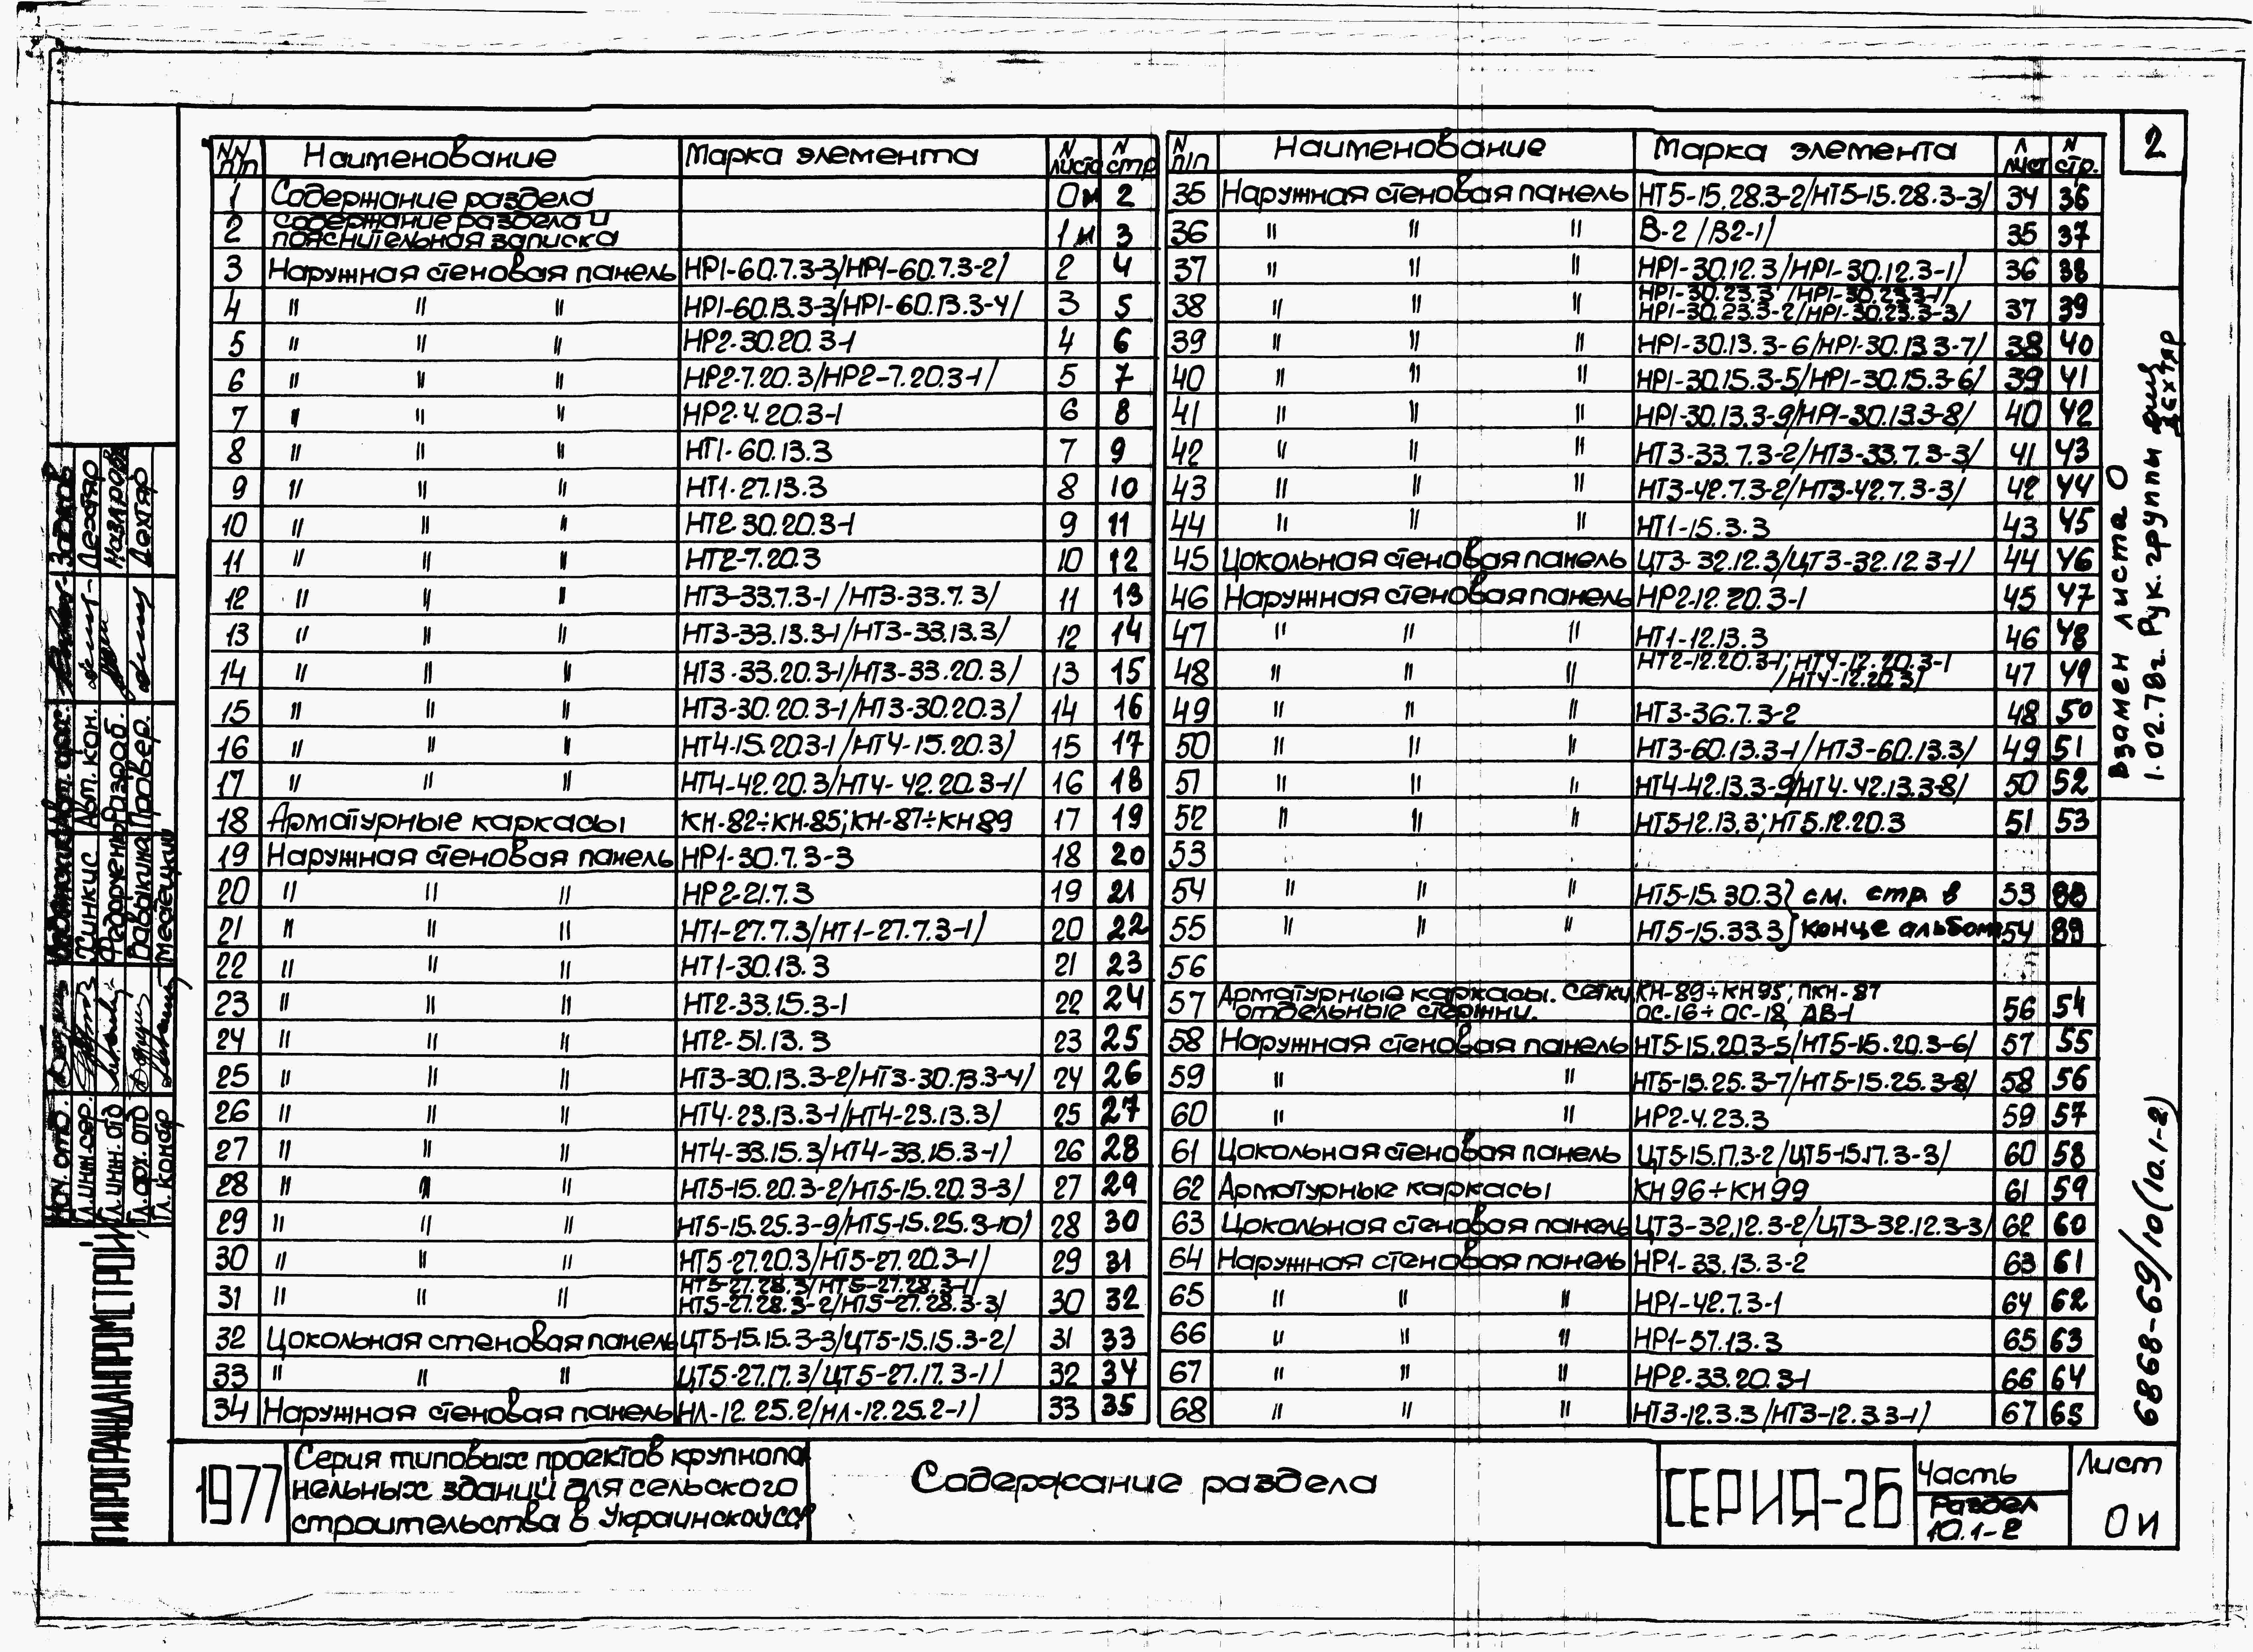 2
NN п/п Наименование Марка элемента N листа N стр
1 Содержание раздела 0и 2
2 Содержание раздела и
пояснительная записка 1и 3
3 Наружная стеновая панель НР1-60.7.3-3/НР1-60.7.3-2/ 2 4
4 " " " НР1-60.13.3-3/НР1-60.13.3-4/ 3 5
5 " " " НР2-30.20.3-1 4 6
6 " " " НР2-7.20.3/НР2-7.20.3-1/ 5 7
7 " " " НР2-4.20.3-1 6 8
8 " " " НТ1-60.13.3 7 9
9 " " " НТ1-27.13.3 8 10
10 " " " НТ2-30.20.3-1 9 11
11 " " " НТ2-7.20.3 10 12
12 " " " НТ3-33.7.3-1/НТ3-33.7.3/ 11 13
13 " " " НТ3-33.13.3-1/НТ3-33.13.3/ 12 14
14 " " " НТ3-33.20.3-1/НТ3-33.20.3/ 13 15
15 " " " НТ3-30.20.3-1/НТ3-30.20.3/ 14 16
16 " " " НТ4-15.20.3-1/НТ4-15.20.3/ 15 17
17 " " " НТ4-42.20.3/НТ4-42.20.3-1/ 16 18
18 Арматурные каркасы КН-82÷КН-85; КН-87÷КН89 17 19
19 Наружная стеновая панель НР1-30.7.3-3 18 20
20 " " " НР2-21.7.3 19 21
21 " " " НТ1-27.7.3/НТ1-27.7.3-1/ 20 22
22 " " " НТ1-30.13.3 21 23
23 " " " НТ2-33.15.3-1 22 24
24 " " " НТ2-51.13.3 23 25
25 " " " НТ3-30.13.3-2/НТ3-30.13.3-4/ 24 26
26 " " " НТ4-23.13.3-1/НТ4-23.13.3/ 25 27
27 " " " НТ4-33.15.3/НТ4-33.15.3-1/ 26 28
28 " " " НТ5-15.20.3-2/НТ5-15.20.3-3/ 27 29
29 " " " НТ5-15.25.3-9/НТ5-15.25.3-10/ 28 30
30 " " " НТ5-27.20.3/НТ5-27.20.3-1/ 29 31
31 " " " НТ5-27.28.3/НТ5-27.28.3-1/
НТ5-27.28.3-2/НТ5-27.28.3-3/ 30 32
32 Цокольная стеновая панель ЦТ5-15.15.3-3/ЦТ5-15.15.3-2/ 31 33
33 " " " ЦТ5-27.17.3/ЦТ5-27.17.3-1/ 32 34
34 Наружная стеновая панель НЛ-12.25.2/НЛ-12.25.2-1/ 33 35
N п/п Наименование Марка элемента N лист N стр.
35 Наружная стеновая панель НТ5-15.28.3-2/НТ5-15.28.3-3/ 34 36
36 " " " В-2/В2-1/ 35 37
37 " " " НР1-30.12.3/НР1-30.12.3-1/ 36 38
38 " " " НР1-30.23.3/НР1-30.23.3-1/
НР1-30.23.3-2/НР1-30.23.3-3/ 37 39
39 " " " НР1-30.13.3-6/НР1-30.13.3-7/ 38 40
40 " " " НР1-30.15.3-5/НР1-30.15.3-6/ 39 41
41 " " " НР1-30.13.3-9/НР1-30.13.3-8/ 40 42
42 " " " НТ3-33.7.3-2/НТ3-33.7.3-3/ 41 43
43 " " " НТ3-42.7.3-2/НТ3-42.7.3-3/ 42 44
44 " " " НТ1-15.3.3 43 45
45 Цокольная стеновая панель ЦТ3-32.12.3/ЦТ3-32.12.3-1/ 44 46
46 Наружная стеновая панель НР2-12.20.3-1 45 47
47 " " " НТ1-12.13.3 46 48
48 " " " НТ2-12.20.3-1; НТ4-12.20.3-1
/НТ4-12.20.3/ 47 49
49 " " " НТ3-36.7.3-2 48 50
50 " " " НТ3-60.13.3-1/НТ3-60.13.3/ 49 51
51 " " " НТ4-42.13.3-9/НТ4-42.13.3-8/ 50 52
52 " " " НТ5-12.13.3; НТ5.12.20.3 51 53
53
54 " " " НТ5-15.30.3} см. стр. в 53 88
55 " " " НТ5-15.33.3} конце альбома 54 89
56
57 Арматурные каркасы. Сетки, КН-89÷КН95; ПКН-87
отдельные стержни. ОС-16÷ОС-18, АВ-1 56 54
58 Наружная стеновая панель НТ5-15.20.3-5/НТ5-15.20.3-6/ 57 55
59 " " НТ5-15.25.3-7/НТ5-15.25.3-8/ 58 56
60 " " НР2-4.23.3 59 57
61 Цокольная стеновая панель ЦТ5-15.17.3-2/ЦТ5-15.17.3-3/ 60 58
62 Арматурные каркасы КН96÷КН99 61 59
63 Цокольная стеновая панель ЦТ3-32.12.3-2/ЦТ3-32.12.3-3/ 62 60
64 Наружная стеновая панель НР1-33.13.3-2 63 61
65 " " " НР1-42.7.3-1 64 62
66 " " " НР1-57.13.3 65 63
67 " " " НР2-33.20.3-1 66 64
68 " " " НТ3-12.3.3/НТ3-12.3.3-1/ 67 65
Взамен листа 0
1.02.78г. Рук. группы Дехтяр
6868-69/10(10.1-2)
Авт. кон. Дехтяр
Разраб. Назарова
Провер. Дехтяр
Нач. отд.
Гл. инж. сер. Жинкис
Гл. инж. отд
Гл. арх. отд
Гл. констр Месецкий
ГИПРОГРАЖДАНПРОМСТРОЙ
1977
Серия типовых проектов крупнопа
нельных зданий для сельского
строительства в Украинской ССР
Содержание раздела
СЕРИЯ-2Б
Часть
Раздел
10.1-2
Лист
0и